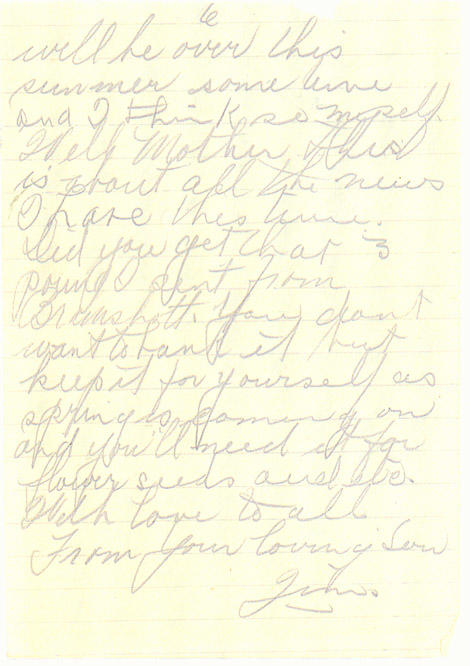 6
will be over this
summer some time
and I think so myself.
Well Mother this
is about all the news
I have this time.
Did you get that 3
pound I sent from
Bramshott. You don't
want to bank it but
keep it for yourself as
spring is coming on
and you'll need it for
flower seeds and etc.
With love to all
From Your loving Son
Jim.